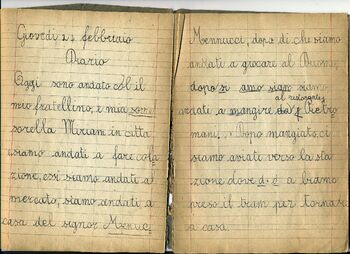 Giovedì 21 febbraio
Diario
Oggi sono andato col il
mio fratellino, e mia sorre
sorella Miriam in città
siamo andati a fare cola
zione, così siamo andati a
mercato, siamo andati a
casa del signor Menuc
Mennucci, dopo di che siamo
andati a giocare al Buono
dopo si amo sign siamo
al ristorante
andati a mangire da Pietro
mani. Dopo mangiato, ci
siamo aviati verso la sta
zione dove a biamo
preso il tram per tornare
a casa